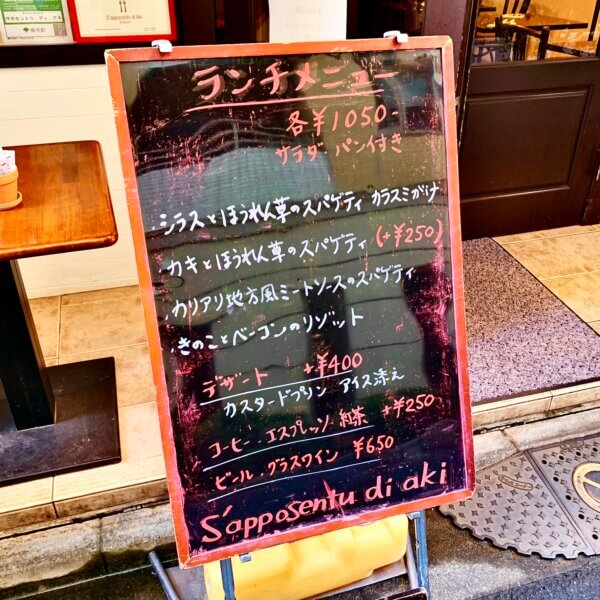 S'apposentu di Aki
サポセントゥ ディ アキ
ランチメニュー
各¥1050-
サラダ パン付き
・シラスとほうれん草のスパゲティ カラスミがけ
・カキとほうれん草のスパゲティ (+¥250)
・カリアリ地方風ミートソースのスパゲティ
・きのことベーコンのリゾット
デザート +¥400
カスタードプリン アイス添え
コーヒー・エスプレッソ・紅茶 +¥250
ビール・グラスワイン ¥650
S'apposentu di aki